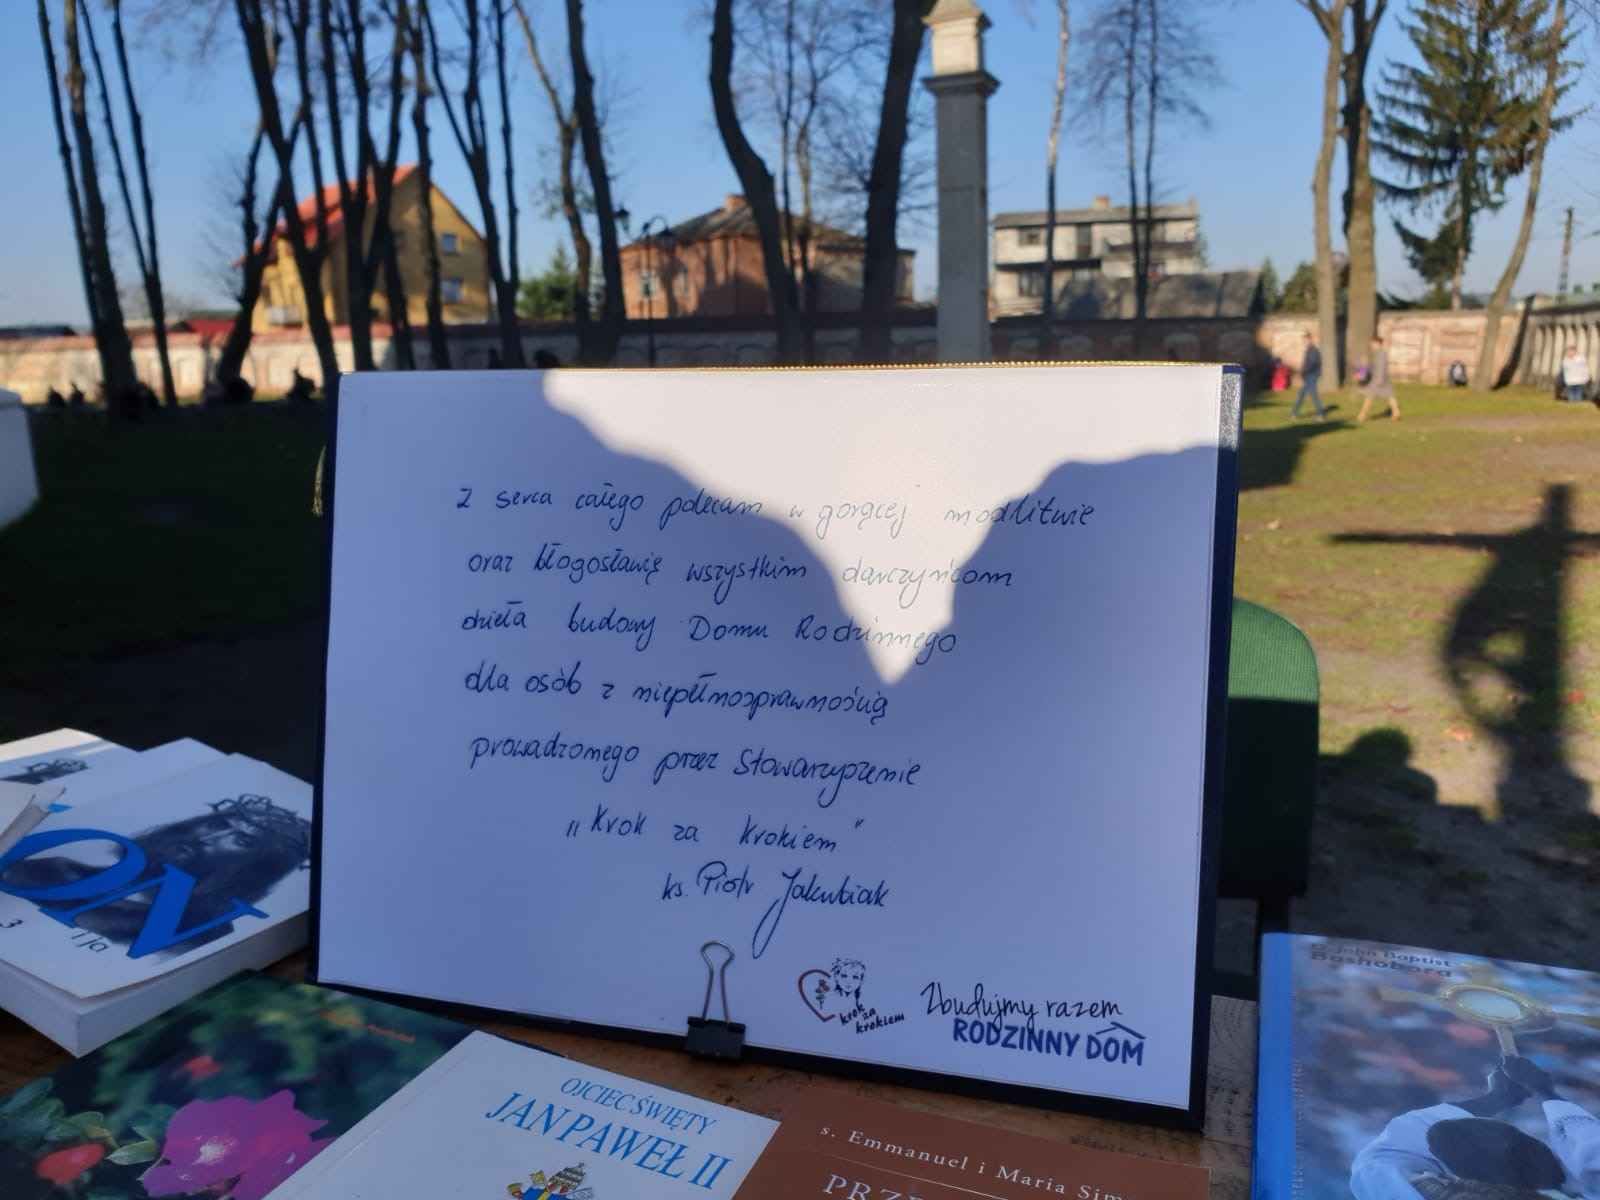 Z serca całego polecam w gorącej modlitwie
oraz błogosławię wszystkim darczyńcom
dzieła budowy Domu Rodzinnego
dla osób z niepełnosprawnością
prowadzonego przez Stowarzyszenie
„Krok za krokiem"
ks. Piotr Jakubiak
krok
za
krokiem
Zbudujmy razem
RODZINNY DOM
ON
3
i ja
OJCIEC ŚWIĘTY
JAN PAWEŁ II
s. Emmanuel i Maria Sim
PRZE
John Baptist
Bashobora